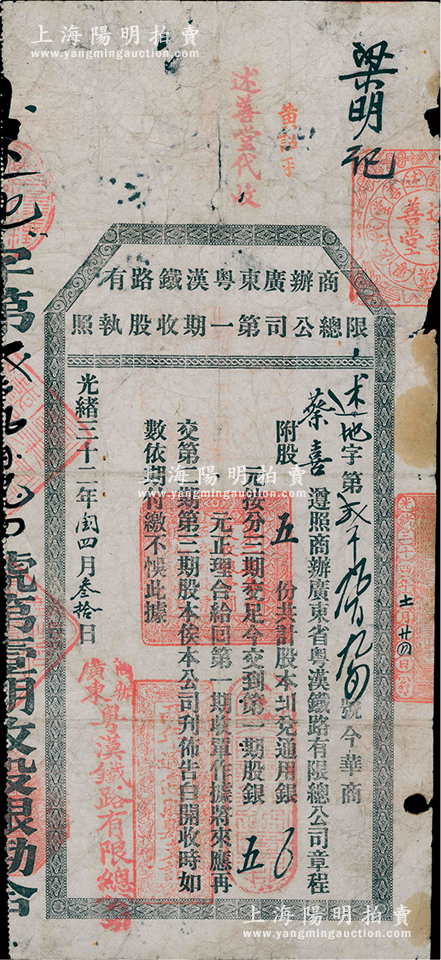 上海陽明拍賣
www.yangmingauction.com
梁明記
述善堂代收
商辦廣東粵漢鐵路有
限總公司第一期收股執照
述地字第 號今華商
蔡喜 遵照商辦廣東省粵漢鐵路有限總公司章程
附股 五 份共計股本圳兌通用銀
元按分三期交足今交到第一期股銀 五
元正理合給回第一期收單作據將來應再
交第二期第三期股本俟本公司刊佈告白開收時如
數依期付繳不悞此據
光緒三十二年閏四月叁拾日
商辦廣東粵漢鐵路有限總公司
字第 號第壹期收股銀勘合
光緒三十四年 十一月廿四日
善堂
上海陽明拍賣
www.yangmingauction.com
上海陽明拍賣
www.yangmingauction.com